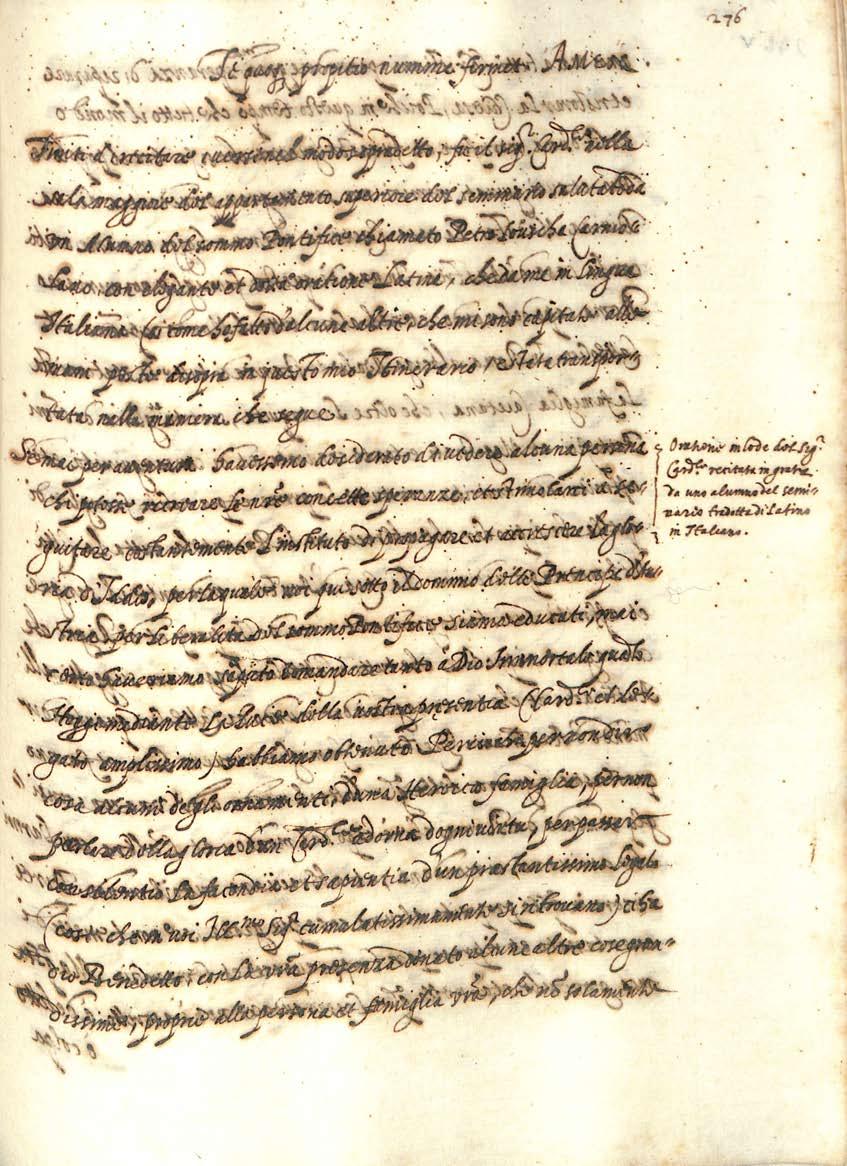 276
Et quoq₃ propitio numine firmet. AMEN.
Finiti di recitare i versi nel modo sopradetto, fu il sig.r Card.le nella
sala maggiore del appartamento superiore del seminario salutato da
un Alunno del sommo Pontifice chiamato Petro
con elegante et dotta oratione Latina, che da me in lingua
Italiana (si come ho fatto d'alcune altre, che mi sono capitate alle
mani poste di sopra in questo mio Itinerario) è stata transpor=
tata nella maniera che segue.
Se mai per aventura havessimo desiderato di vedere alcuna persona
chi potesse recreare le nr̃e concette speranze, et stimolarci à se=
guitare costantemente l'instituto di propagare et accrescere la glo=
ria d'Iddio, per la quale noi qui sotto il dominio delle Principe d'Au=
stria per liberalità del sommo Pontifice siamo educati, mai
certo haveriamo saputo domandare tanto à Dio Immortale quanto
Hoggi mediante la luce della vostra presentia (Card.le et le=
gato amplissimo) habbiamo ottenuto. Percioche per non dire
cosa alcuna degli ornamenti d'una Heroica famiglia, per non
parlare della gloria d'un Card.le adorna d'ogni virtu, per passare
con silentio la facondia et sapientia d'un prestantissimo Legato
(cose che in voi Ill.mo Sig.r cumulatissimamente si ritrovano) ci ha
dio Benedetto con la vr̃a presenza donato alcune altre cose gran=
dissime, proprie alla persona et famiglia vr̃a, che nõ solamente
Oratione in lode del Sig.r
Card.le recitata in gratz
da uno alumno del semi=
nario tradotta di Latino
in Italiano.